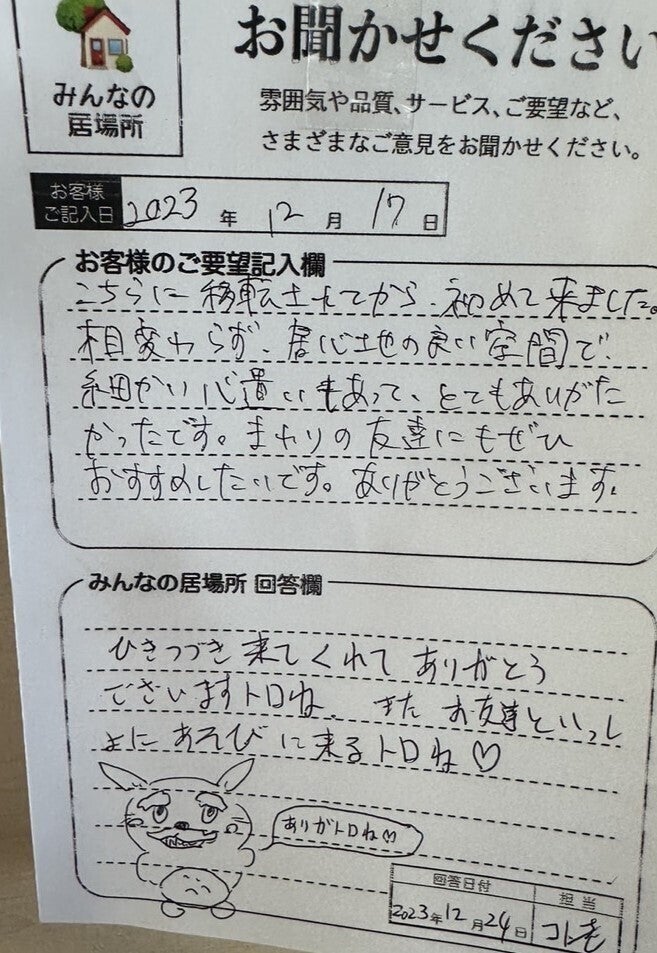 お聞かせください
みんなの
居場所
雰囲気や品質、サービス、ご要望など、
さまざまなご意見をお聞かせください。
お客様
ご記入日
2023年12月17日
お客様のご要望記入欄
こちらに移転されてから、初めて来ました。
相変わらず、居心地の良い空間で、
細かい心遣いもあって、とてもありがた
かったです。まわりの友達にもぜひ
おすすめしたいです。ありがとうございます。
みんなの居場所 回答欄
ひきつづき来てくれてありがとう
でさいますトロね、またお友達といっし
ょにあそびに来るトロね♡
ありがトロね♡
回答日付
担当
2023年12月24日